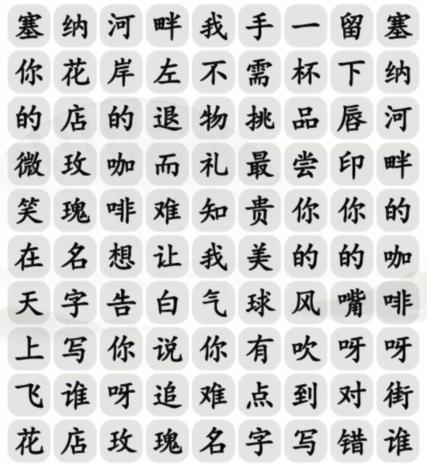 塞纳河畔我手一留塞
你花岸左不需杯下纳
的店的退物挑品唇河
微玫咖而礼最尝印畔
笑瑰啡难知贵你你的
在名想让我美的的咖
天字告白气球风嘴啡
上写你说你有吹呀呀
飞谁呀追难点到对街
花店玫瑰名字写错谁